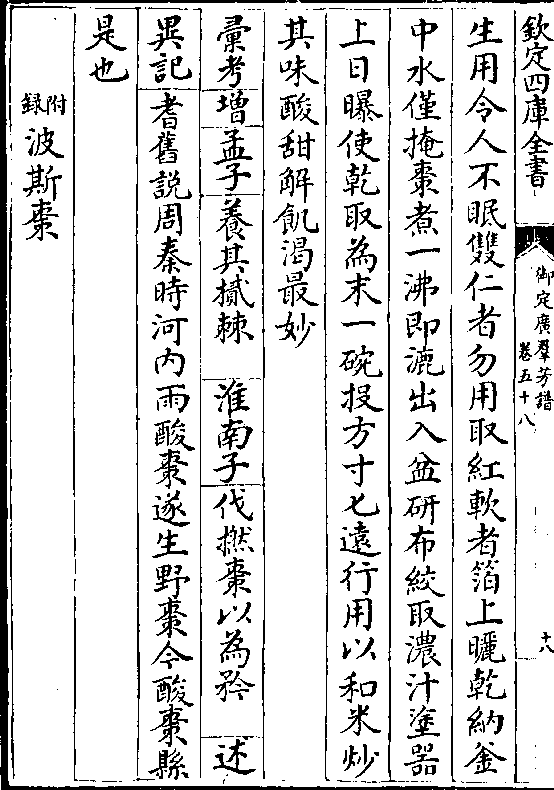 欽定四庫全書
御定廣羣芳譜
卷五十八
十八
生用令人不眠雙仁者勿用取紅軟者箔上曬乾納釜
中水僅掩棗煮一沸即漉出入盆研布絞取濃汁塗器
上日曝使乾取為末一碗投方寸匕遠行用以和米炒
其味酸甜解飢渴最妙
彙考增孟子養其樲棘 淮南子伐橪棗以為矜 述
異記耆舊說周秦時河内雨酸棗遂生野棗今酸棗縣
是也
附錄波斯棗